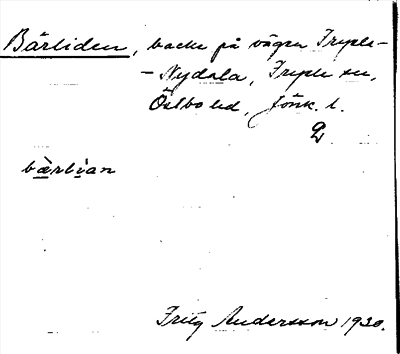 Bärliden, backe på vägen Fryele-
- Nydala, Fryele sn,
Östbo hd, Jönk. l.
bærlian
Fritz Andersson 1930.